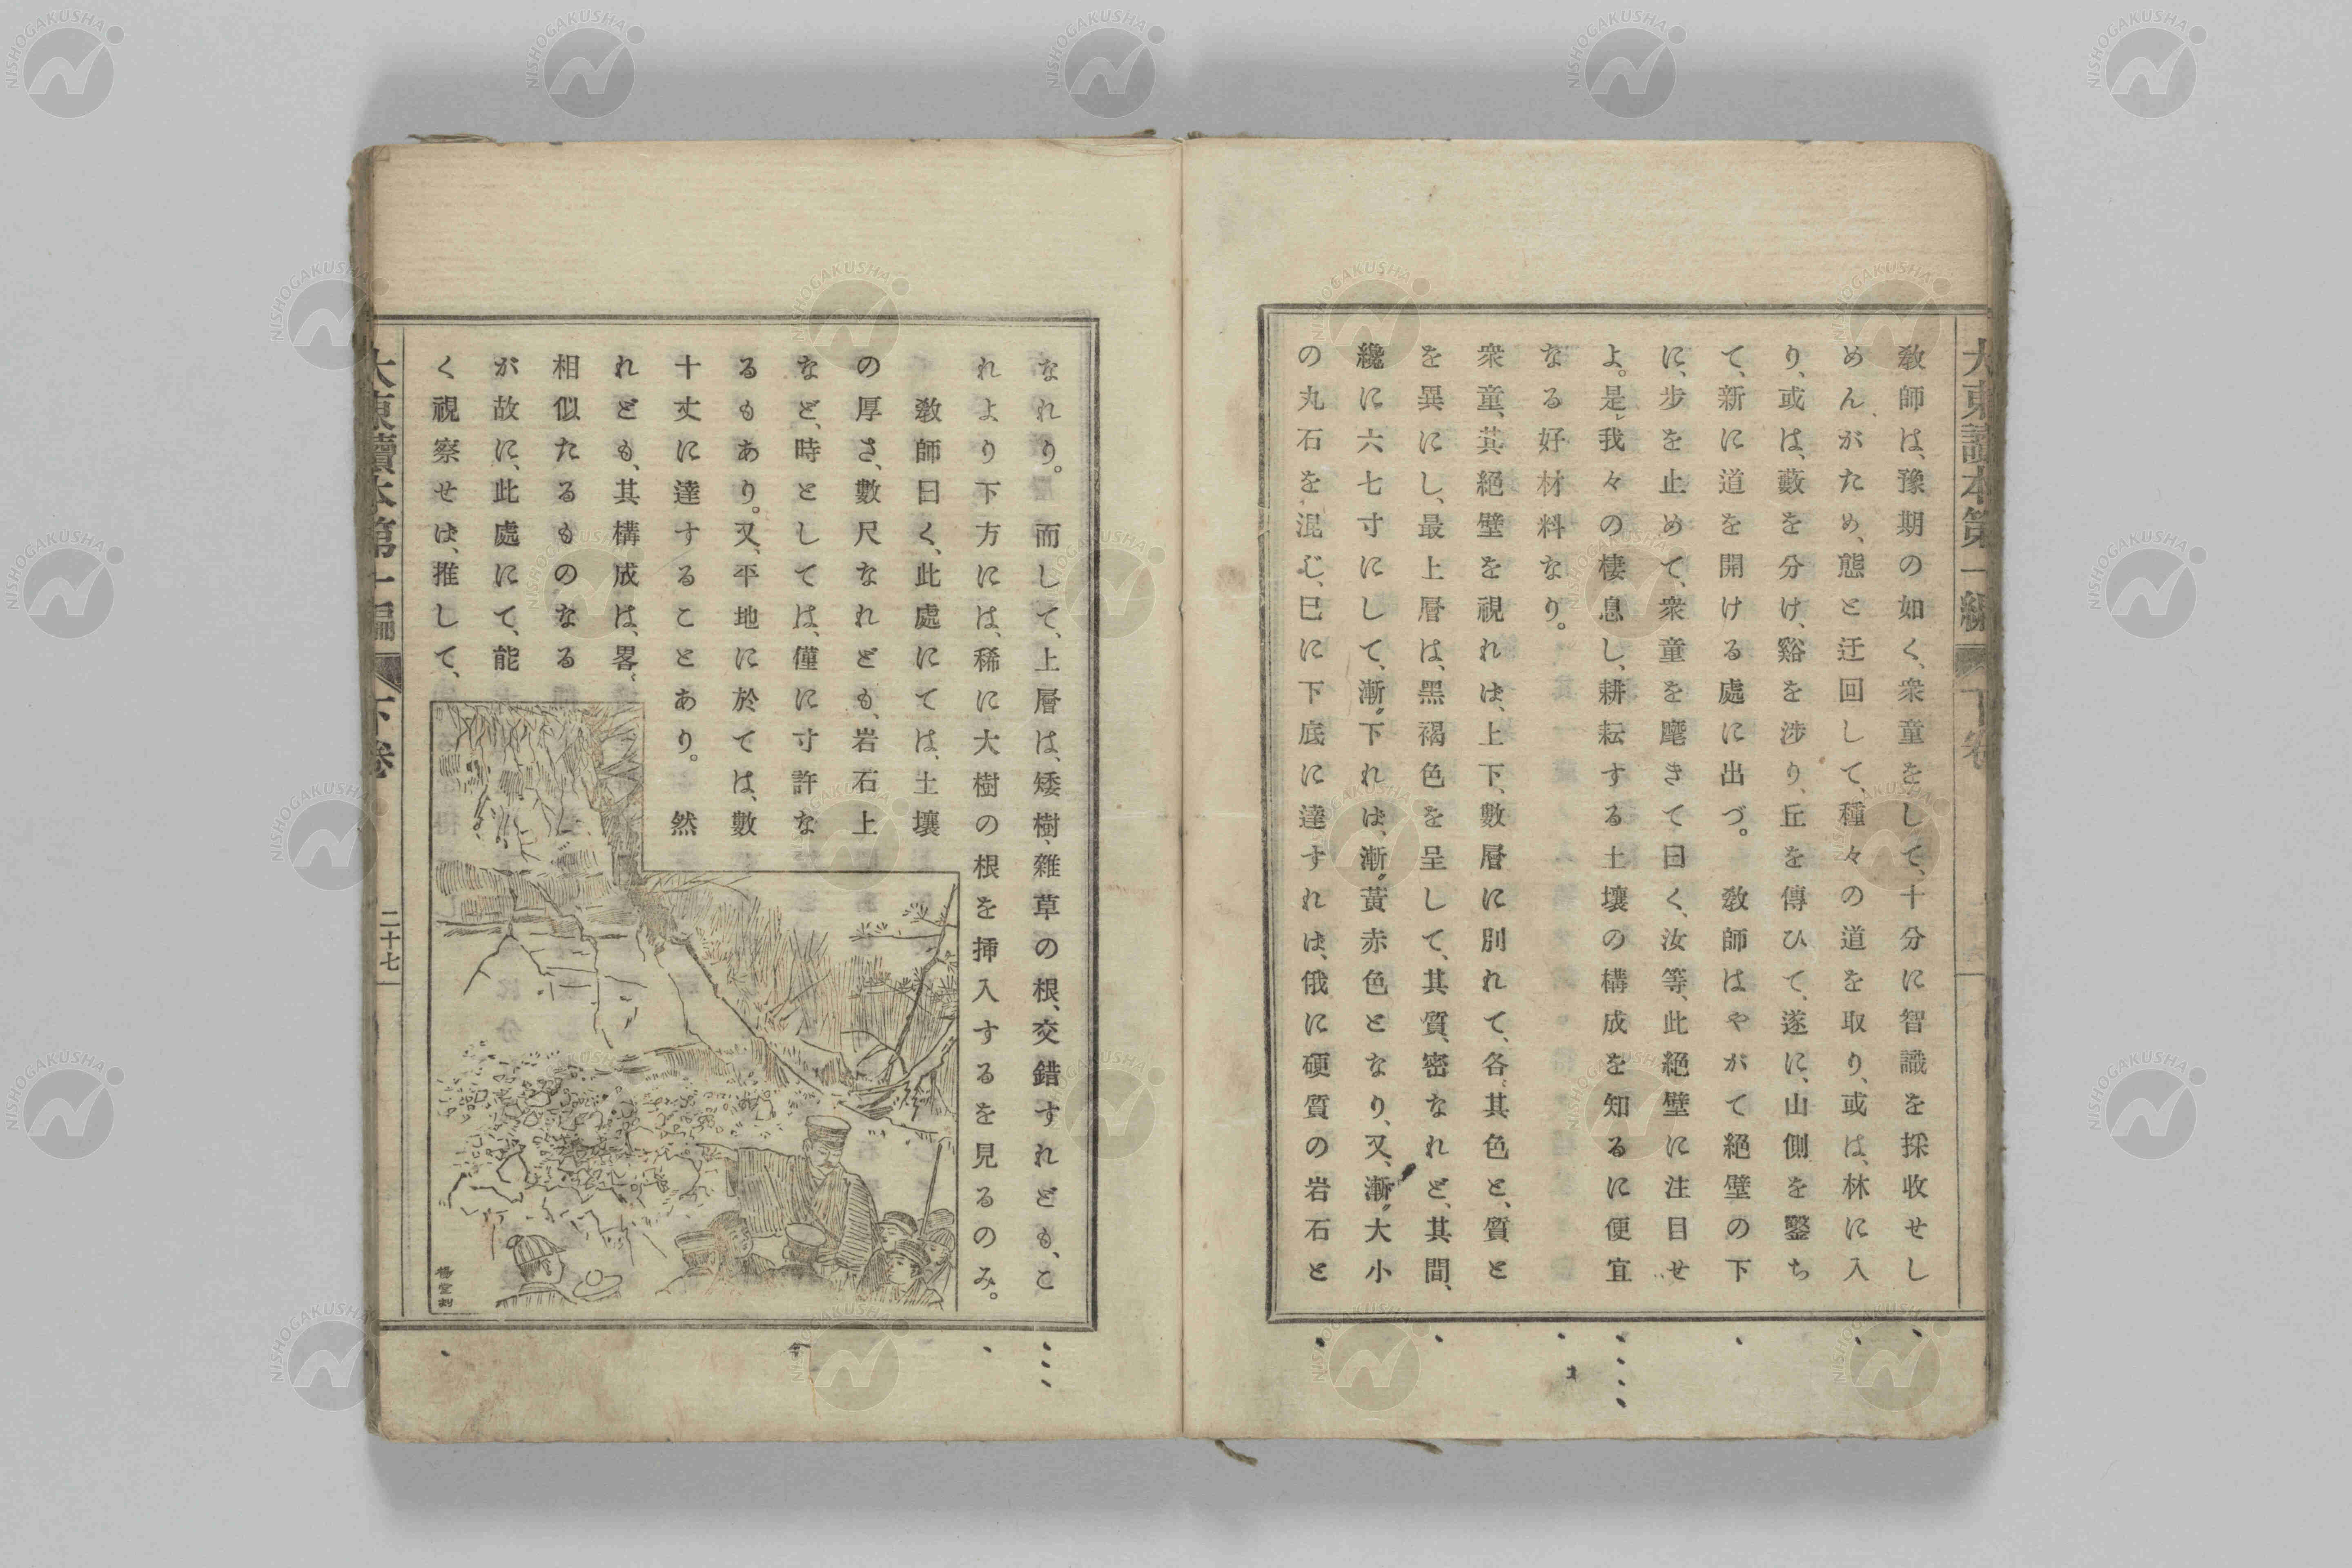 大東讀本第一編 下卷
教師は、豫期の如く、衆童をして、十分に智識を採收せし
めんがため、態と迂回して、種々の道を取り、或は、林に入
り、或は、藪を分け、谿を渉り、丘を傳ひて、遂に、山側を鑿ち
て、新に道を開ける處に出づ。 教師はやがて絕壁の下
に、步を止めて、衆童を麾きて曰く、汝等、此絕壁に注目せ
よ。是、我々の棲息し、耕耘する土壤の構成を知るに便宜
なる好材料なり。
衆童、其絕壁を視れは、上下、數層に別れて、各、其色と、質と
を異にし、最上層は、黑褐色を呈して、其質、密なれど、其間、
纔に六七寸にして、漸〻下れは、漸〻黃赤色となり、又、漸〻大小
の丸石を混じ、已に下底に達すれは、俄に硬質の岩石と
なれり。 而して、上層は、矮樹、雜草の根、交錯すれども、こ
れより下方には、稀に大樹の根を挿入するを見るのみ。
敎師曰く、此處にては、土壤
の厚さ、數尺なれども、岩石上
など、時としては、僅に寸許な
るもあり。又、平地に於ては、數
十丈に達することあり。 然
れども、其構成は、畧〻
相似たるものなる
が故に、此處にて、能
く視察せは、推して、
大東讀本第一編 下卷 二十七
NISHOGAKUSHA